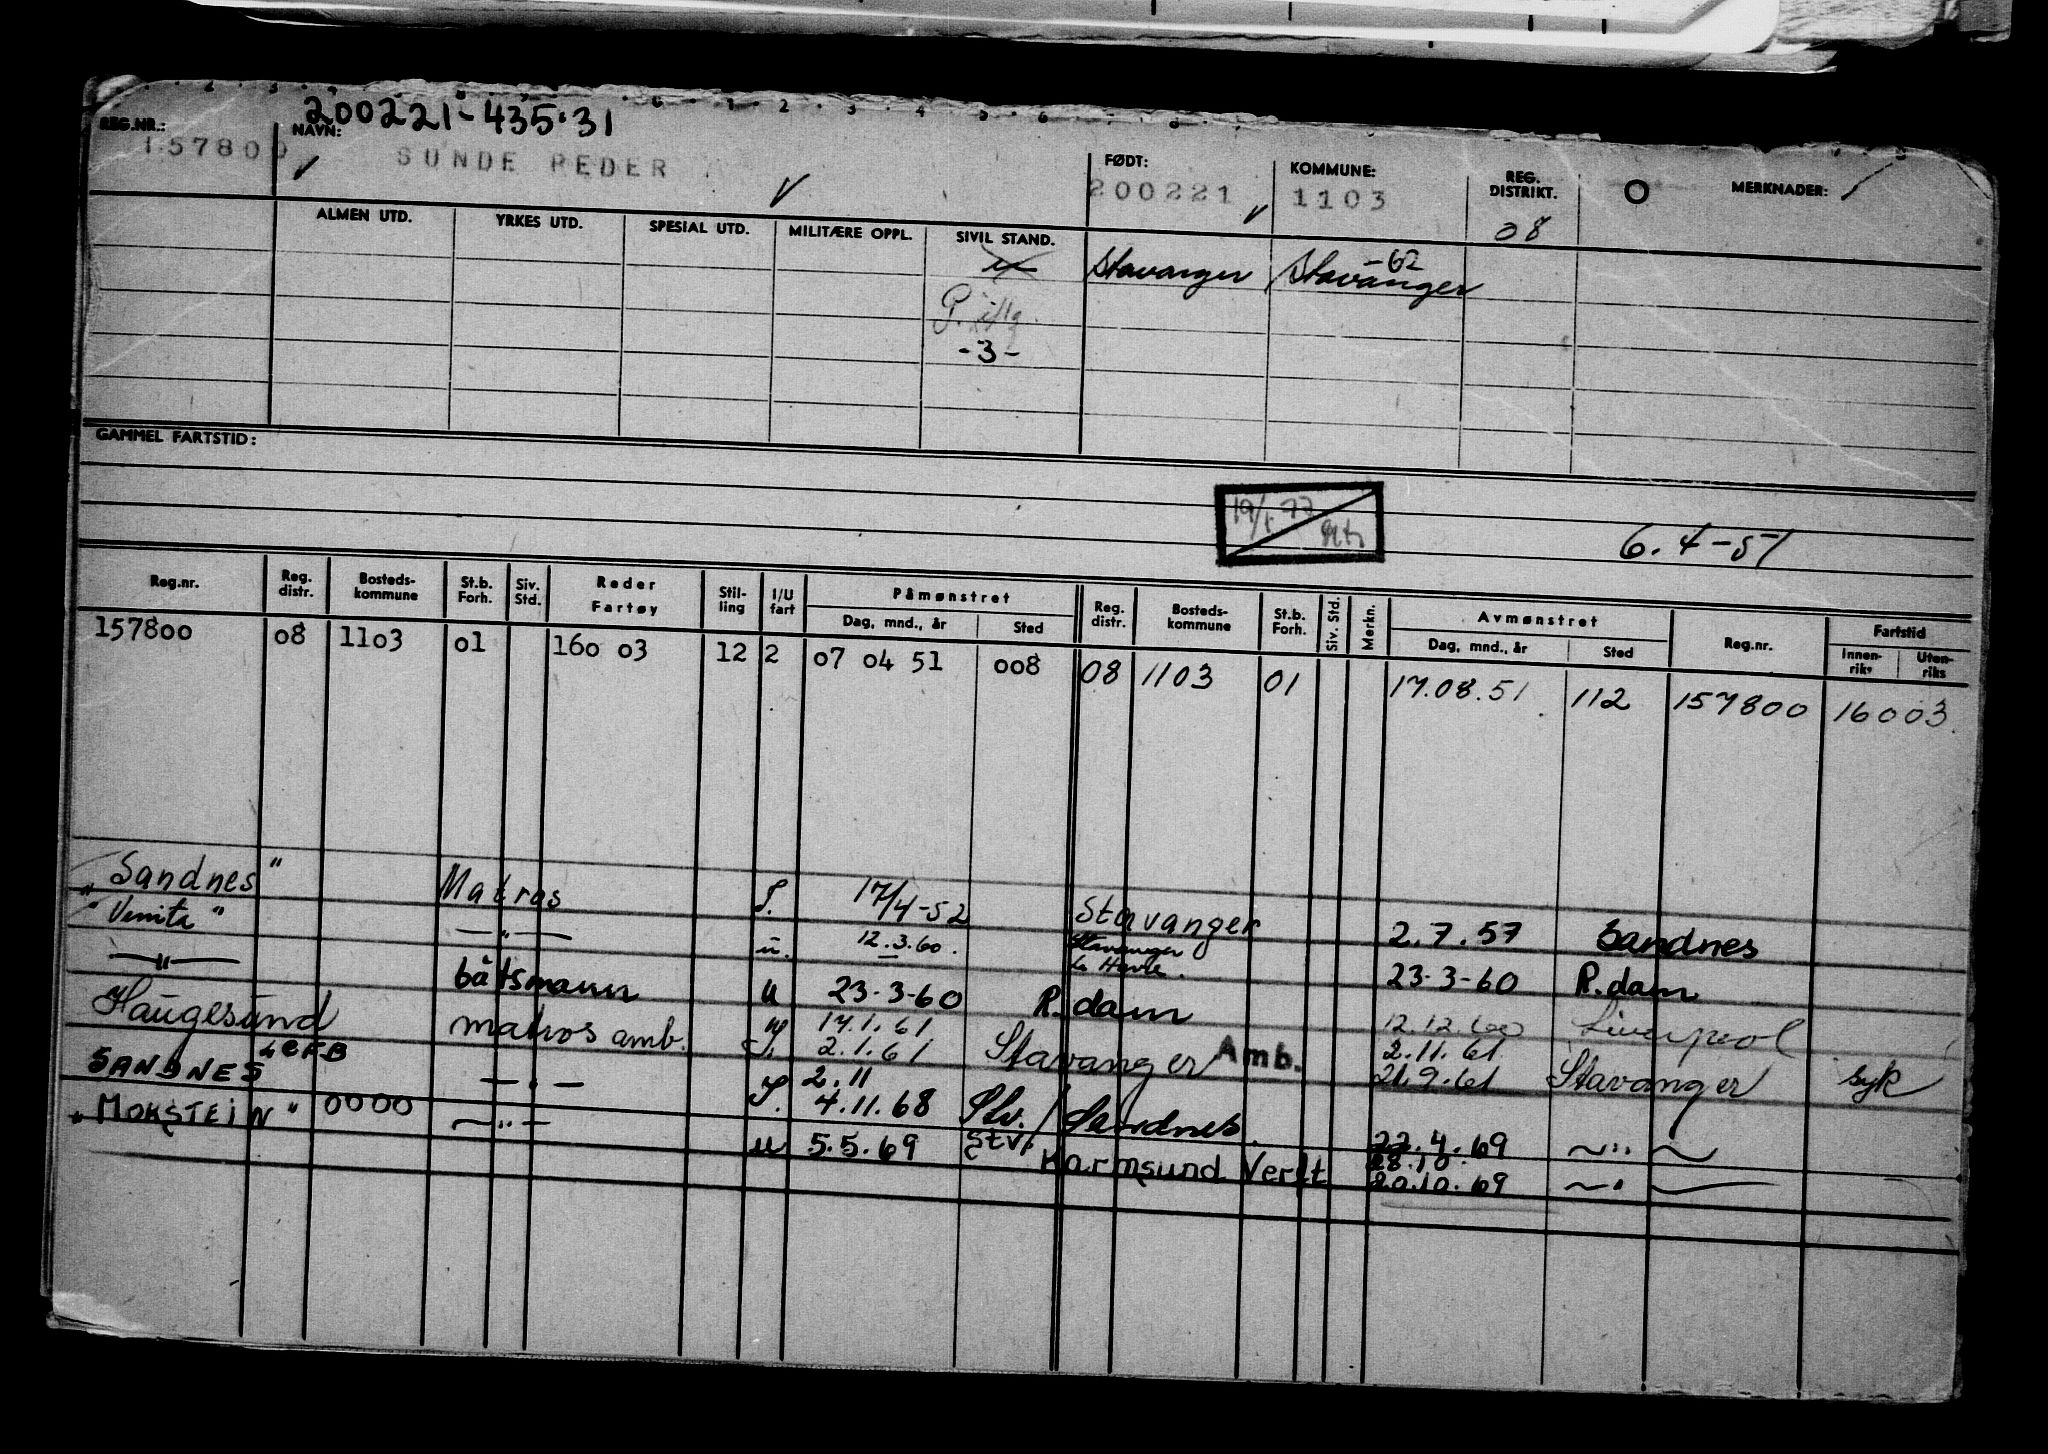 200221-435.31
REG.NR.: NAVN: FØDT: KOMMUNE: REG. DISTRIKT. MERKNADER:
157800 SUNDE PEDER 200221 1103 08
ALMEN UTD. YRKES UTD. SPESIAL UTD. MILITÆRE OPPL. SIVIL STAND.
Stavanger Stavanger -62
-3-
GAMMEL FARTSTID:
19/1 77
6.4-51
Reg.nr. Reg. distr. Bosteds-kommune St.b. Forh. Siv. Std. Reder Fartøy Stil-ling I/U fart Påmønstret Dag, mnd., år Sted Reg. distr. Bosteds-kommune St.b. Forh. Siv. Std. Merkn. Avmønstret Dag, mnd., år Sted Reg.nr. Fartstid Innen-riks Uten-riks
157800 08 1103 01 160 03 12 2 07 04 51 008 08 1103 01 17.08.51 112 157800 16003
"Sandnes" Matros 17/4-52 Stavanger 2.7.57 Sandnes
"Venita" —"— u. 12.3.60. Stavanger Le Havre. 23-3-60 R.dam
—"— båtsmann u 23-3-60 R.dam 12.12.60 Liverpool
Haugesund matros amb. 17.1.61 2.1.61 Stavanger Amb. 2.11.61 21.9.61 Stavanger syk
SANDNES LEFB —"— 2.11 4.11.68 Stv./Sandnes. 22.4.69 —"—
"MOKSTEIN" 0000 —"— u 5.5.69 Stv. Karmsund Verft 28.10. 20.10.69 —"—